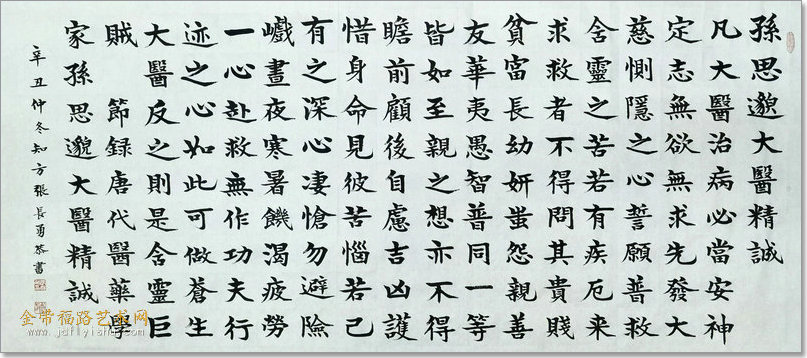 孫思邈大醫精誠
凡大醫治病必當安神
定志無欲無求先發大
慈惻隱之心誓願普救
含靈之苦若有疾厄来
求救者不得問其貴賤
貧富長幼妍蚩怨親善
友華夷愚智普同一等
皆如至親之想亦不得
瞻前顧後自慮吉凶護
惜身命見彼苦惱若己
有之深心凄愴勿避險
巇晝夜寒暑饑渴疲勞
一心赴救無作功夫行
迹之心如此可做蒼生
大醫反之則是含靈巨
賊 節録唐代醫藥學
家孫思邈大醫精誠
辛丑仲冬知方張長勇恭書
金带福路艺术网
www.jdflyishu.com